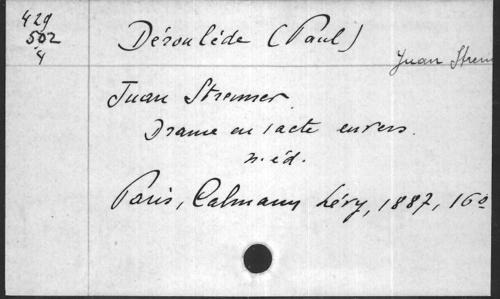 429
502
4
Déroulède (Paul)
Juan Stren
Juan Strenner.
Drame en 1 acte en vers.
n. éd.
Paris, Calmann Lévy, 1887, 16o